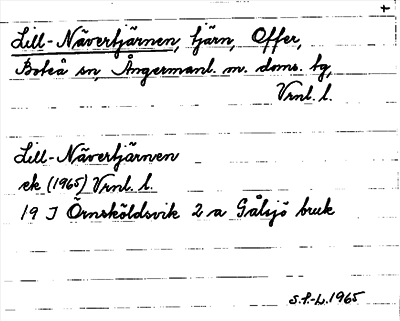 +
Lill-Nävertjärnen, tjärn, Offer,
Boteå sn, Ångermanl. m. doms. tg,
Vrnl. l.
Lill-Nävertjärnen
ek (1965) Vrnl. l.
19 J Örnsköldsvik 2 a Gålsjö bruk
S.P.-L. 1965